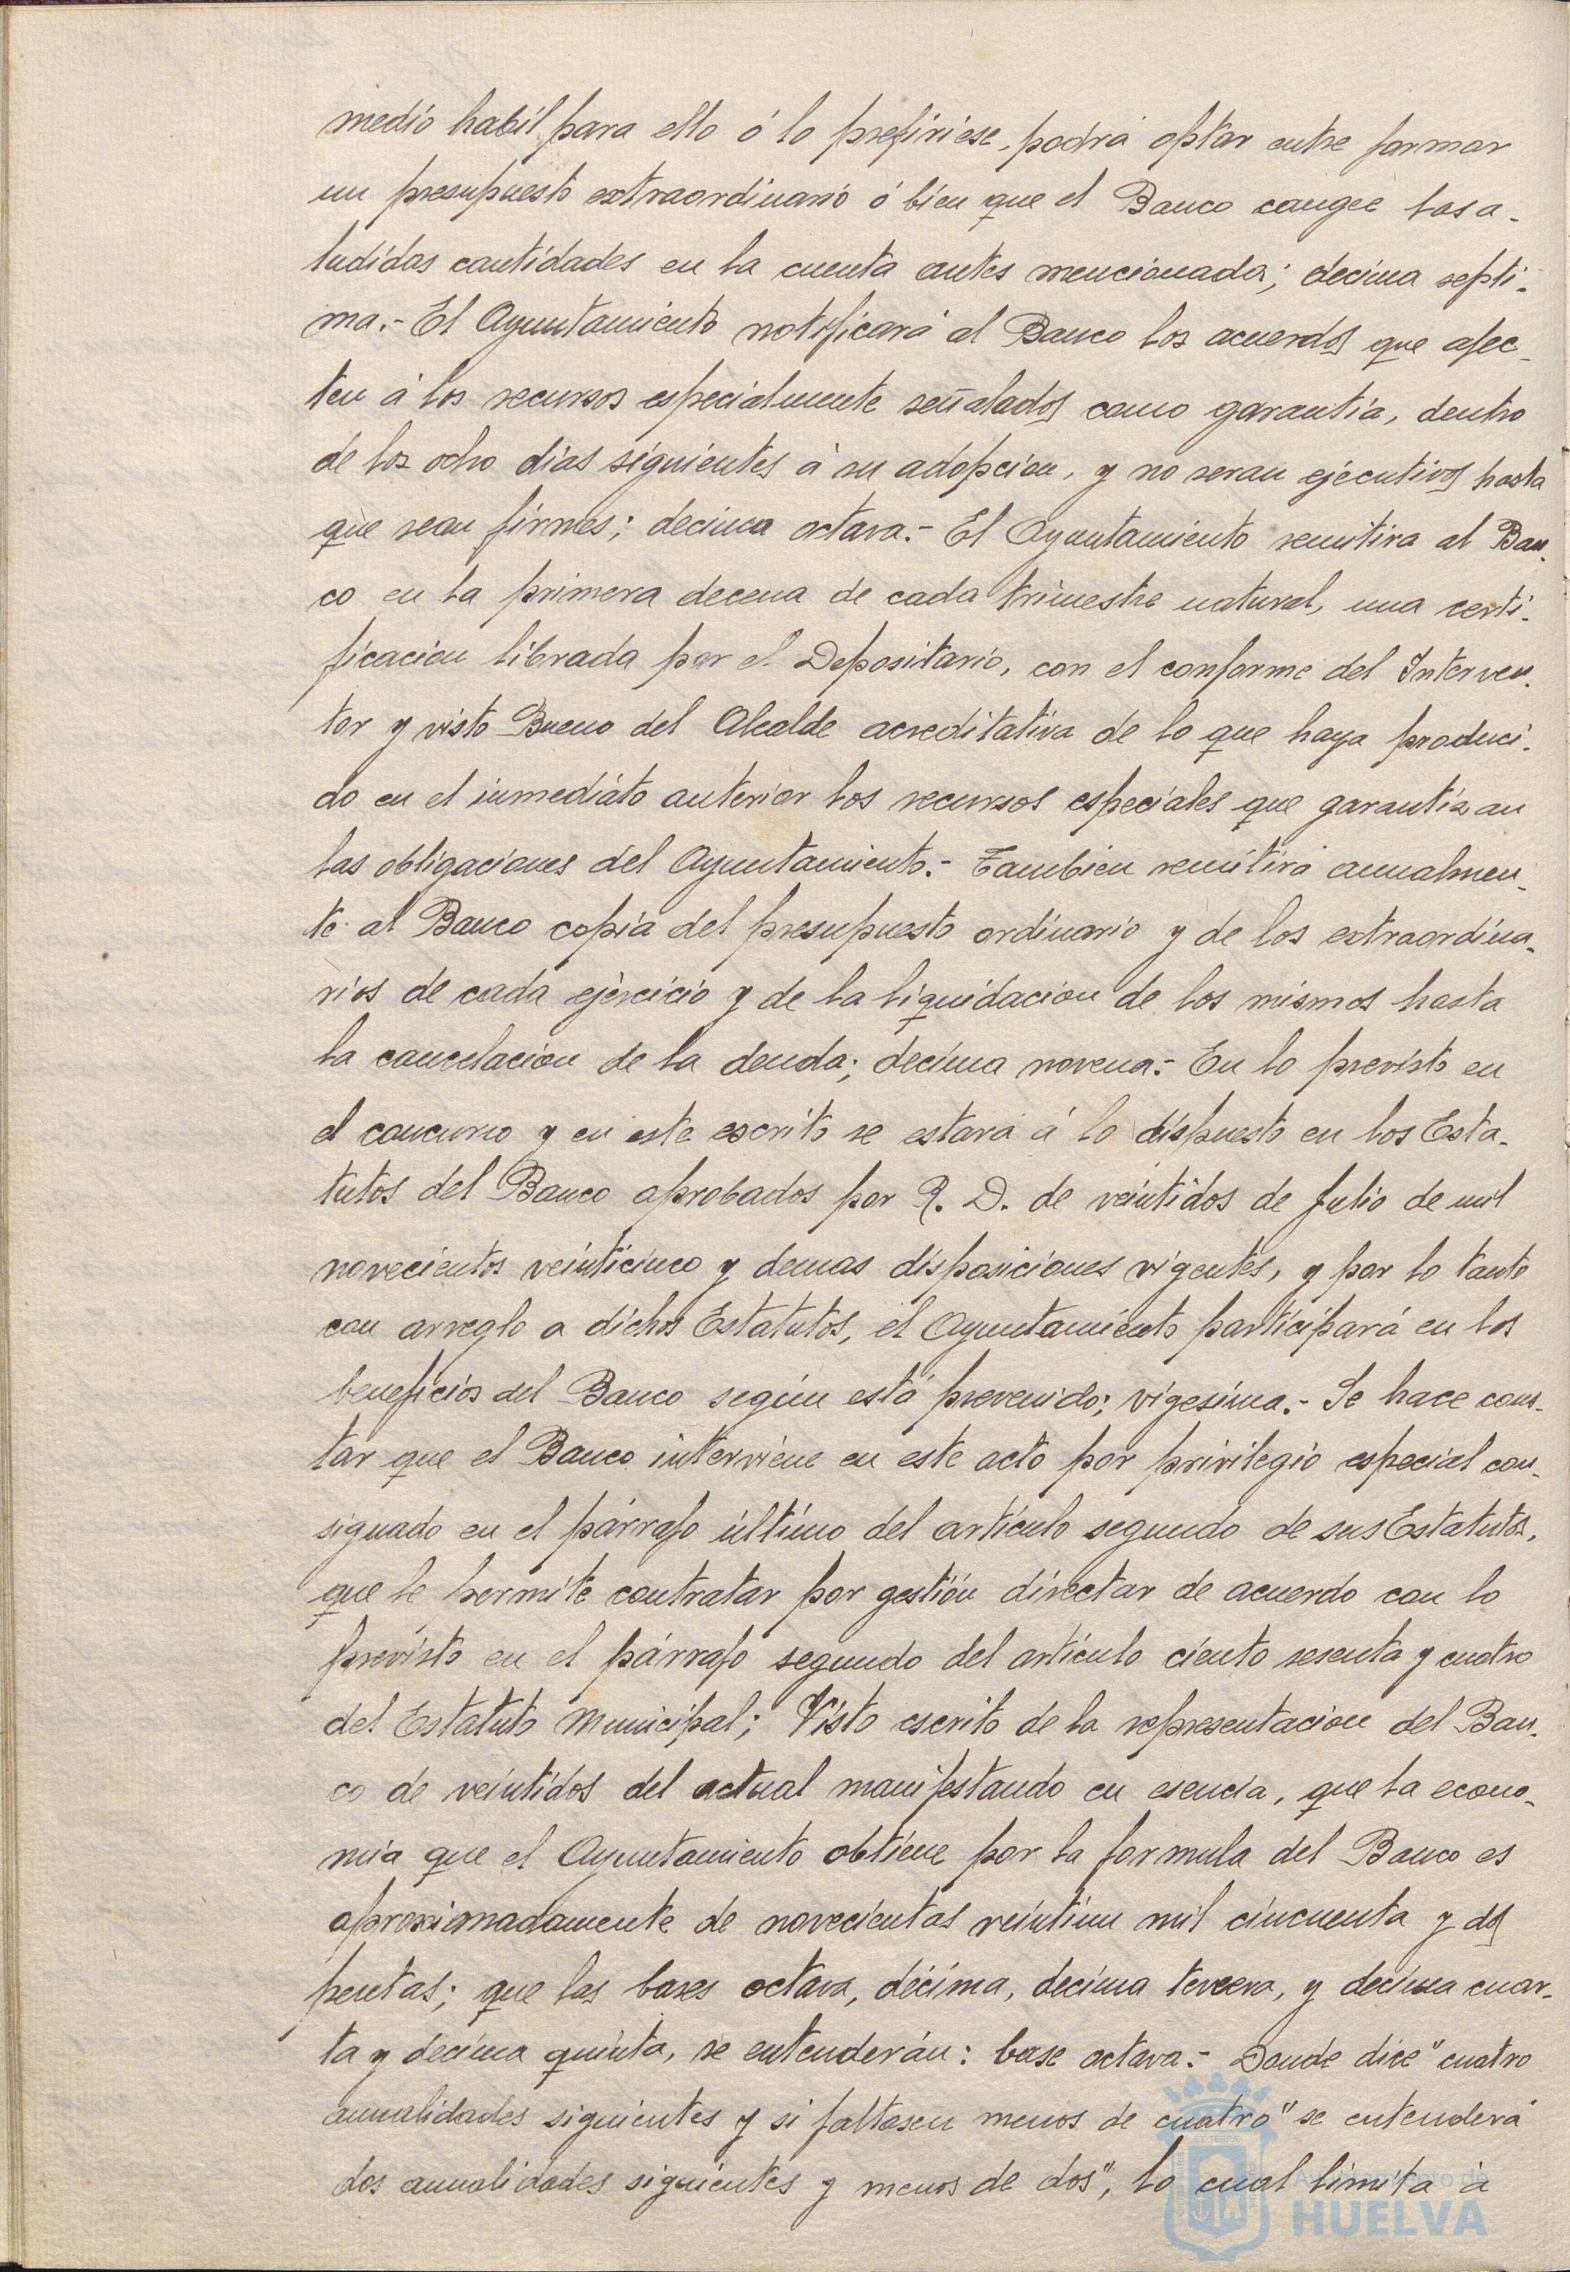 medio habil para ello ó lo prefiriese, podrá optar entre formar
un presupuesto extraordinario ó bien que el Banco cangee las a-
ludidas cantidades en la cuenta antes mencionada; decima septi-
ma.- El Ayuntamiento notificará al Banco los acuerdos que afec-
ten á los recursos especialmente señalados como garantia, dentro
de los ocho dias siguientes á su adopcion, y no seran ejecutivos hasta
que sean firmes; decima octava.- El Ayuntamiento remitira al Ban-
co en la primera decena de cada trimestre natural, una certi-
ficacion librada por el Depositario, con el conforme del Interven-
tor y visto Bueno del Alcalde acreditativa de lo que haya produci-
do en el inmediato anterior los recursos especiales que garantizan
las obligaciones del Ayuntamiento.- Tambien remitirá anualmen-
te al Banco copia del presupuesto ordinario y de los extraordina-
rios de cada ejercicio y de la liquidacion de los mismos hasta
la cancelacion de la deuda; decima novena.- En lo previsto en
el concurso y en este escrito se estará á lo dispuesto en los Esta-
tutos del Banco aprobados por R. D. de veintidos de Julio de mil
novecientos veinticinco y demas disposiciones vigentes, y por lo tanto
con arreglo a dichos Estatutos, el Ayuntamiento participará en los
beneficios del Banco según está prevenido; vigesima.- Se hace cons-
tar que el Banco interviene en este acto por privilegio especial con-
signado en el párrafo último del articulo segundo de sus Estatutos,
que le permite contratar por gestión directar de acuerdo con lo
previsto en el párrafo segundo del articulo ciento sesenta y cuatro
del Estatuto Municipal; Visto escrito de la representacion del Ban-
co de veintidos del actual manifestando en esencia, que la econo-
mia que el Ayuntamiento obtiene por la formula del Banco es
aproximadamente de novecientas veintiun mil cincuenta y dos
pesetas; que las bases octava, décima, decima tercera, y decima cuar-
ta y decima quinta, se entenderán: base octava.- Donde dice "cuatro
anualidades siguientes y si faltasen menos de cuatro" se entenderá
dos anualidades siguientes y menos de dos", lo cual limita á
Ayuntamiento de
HUELVA